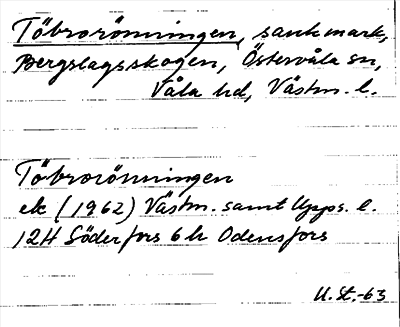 Töbrorönningen, sank mark,
Bergslagsskogen, Östervåla sn,
Våla hd, Västm. l.
Töbrorönningen
ek (1962) Västm. samt Upps. l.
12H Söderfors 6h Odensfors
U.St.-63